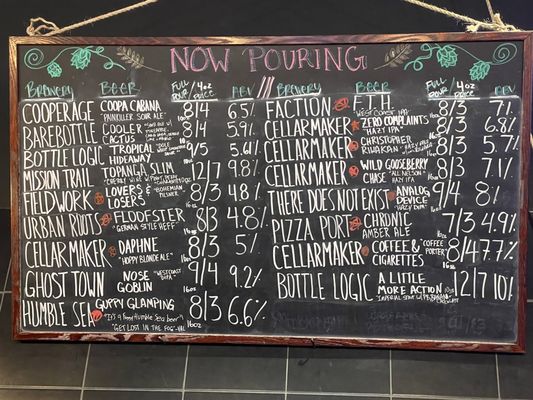 NOW POURING
BREWERY BEER FULL POUR / 4oz PRICE ABV // BREWERY BEER FULL POUR / 4oz PRICE ABV
COOPERAGE COOPA CABANA "PAINKILLER ALE" 8/4 6.5%
BAREBOTTLE COOLER CACTUS 8/4 5.9%
BOTTLE LOGIC TROPICAL HIDEAWAY 9/5 5.61%
MISSION TRAIL TOPANGA 12/7 9.8%
FIELDWORK LOVERS & LOSERS "BOHEMIAN PILSNER" 8/3 4.8%
URBAN ROOTS FLOOFSTER "GERMAN STYLE HEFF" 8/3 4.8%
CELLARMAKER DAPHNE "HOPPY BLONDE ALE" 16oz 8/3 5%
GHOST TOWN NOSE GOBLIN "WEST COAST DIPA" 16oz 9/4 9.2%
HUMBLE SEA GUPPY GLAMPING 8/3 6.6%
"It's a foggy Humble Sea beer"
"GET LOST IN THE FOG" 16oz
FACTION F.T.H. "WEST COAST IPA" 8/3 7%
CELLARMAKER ZERO COMPLAINTS "HAZY IPA" 8/3 6.8%
CELLARMAKER CHRISTOPHER RIWAKAN 8/3 5.7%
CELLARMAKER WILD GOOSEBERRY CHASE "ALL NELSON" HAZY IPA 8/3 7.1%
THERE DOES NOT EXIST ANALOG DEVICE "HAZY DIPA" 9/4 8%
PIZZA PORT CHRONIC AMBER ALE 7/3 4.9%
CELLARMAKER COFFEE & CIGARETTES "COFFEE PORTER" 16oz 8/4 7.7%
BOTTLE LOGIC A LITTLE MORE ACTION 12/7 10%